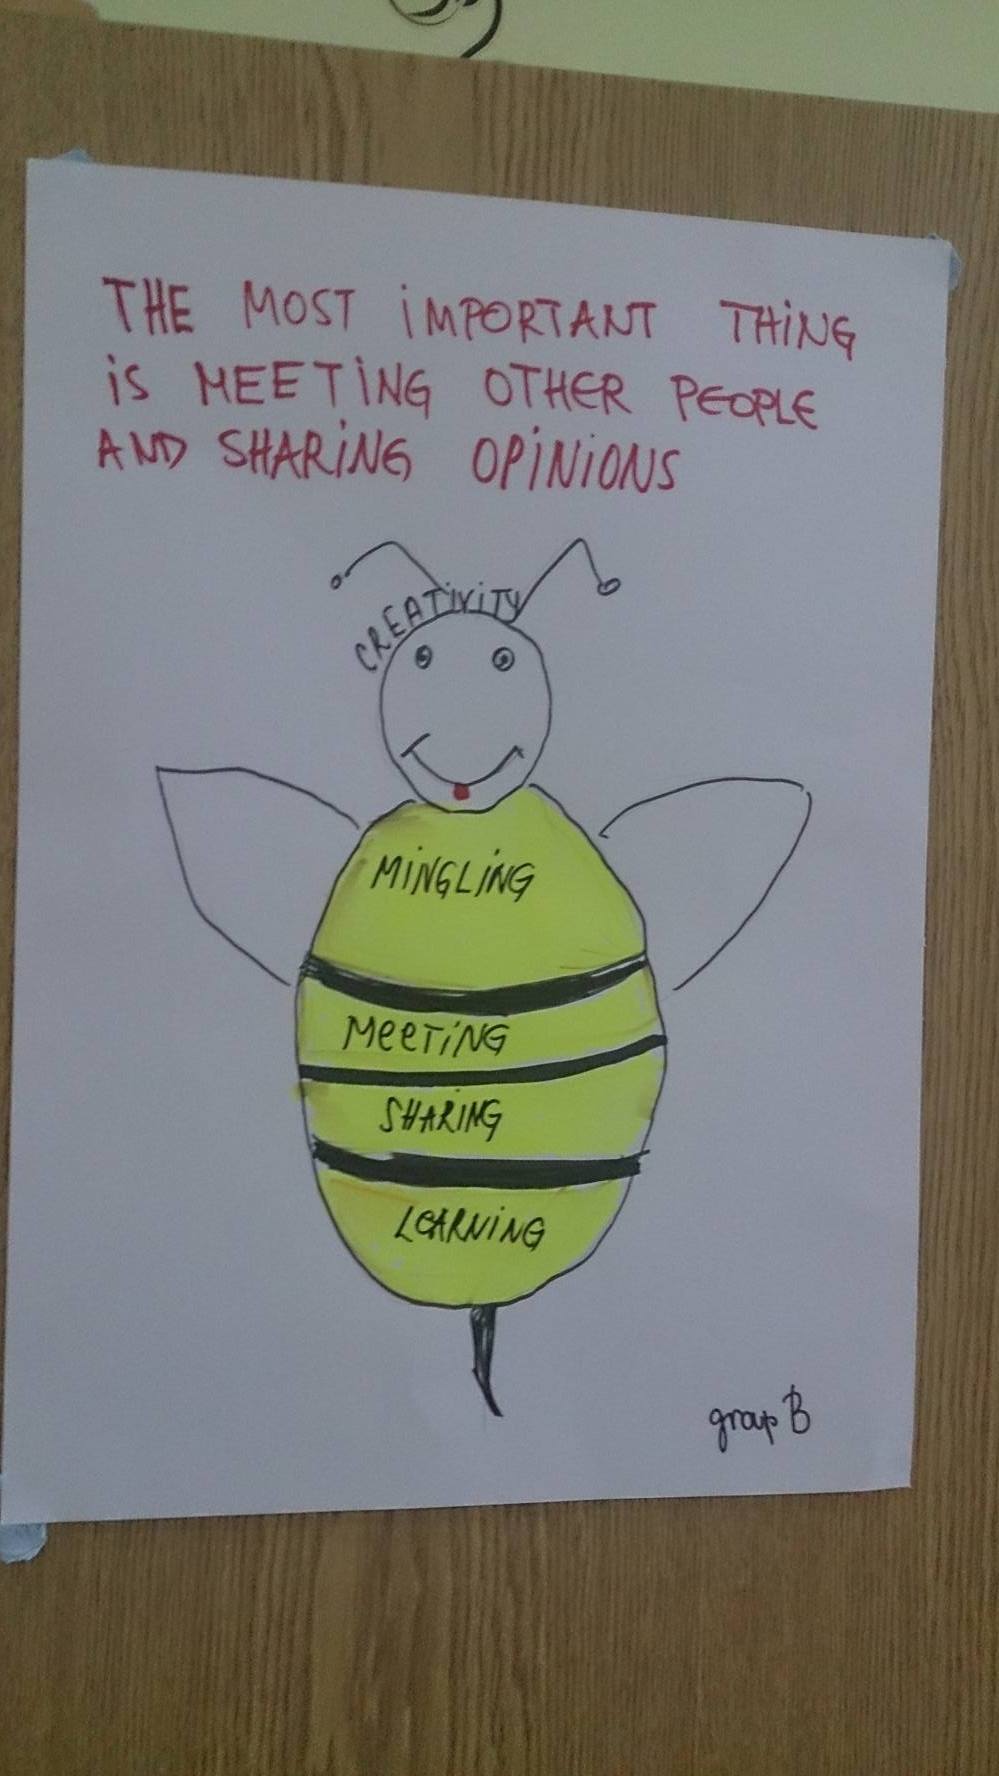 THE MOST IMPORTANT THING
IS MEETING OTHER PEOPLE
AND SHARING OPINIONS
CREATIVITY
MINGLING
MeeTING
SHARING
LEARNING
group B